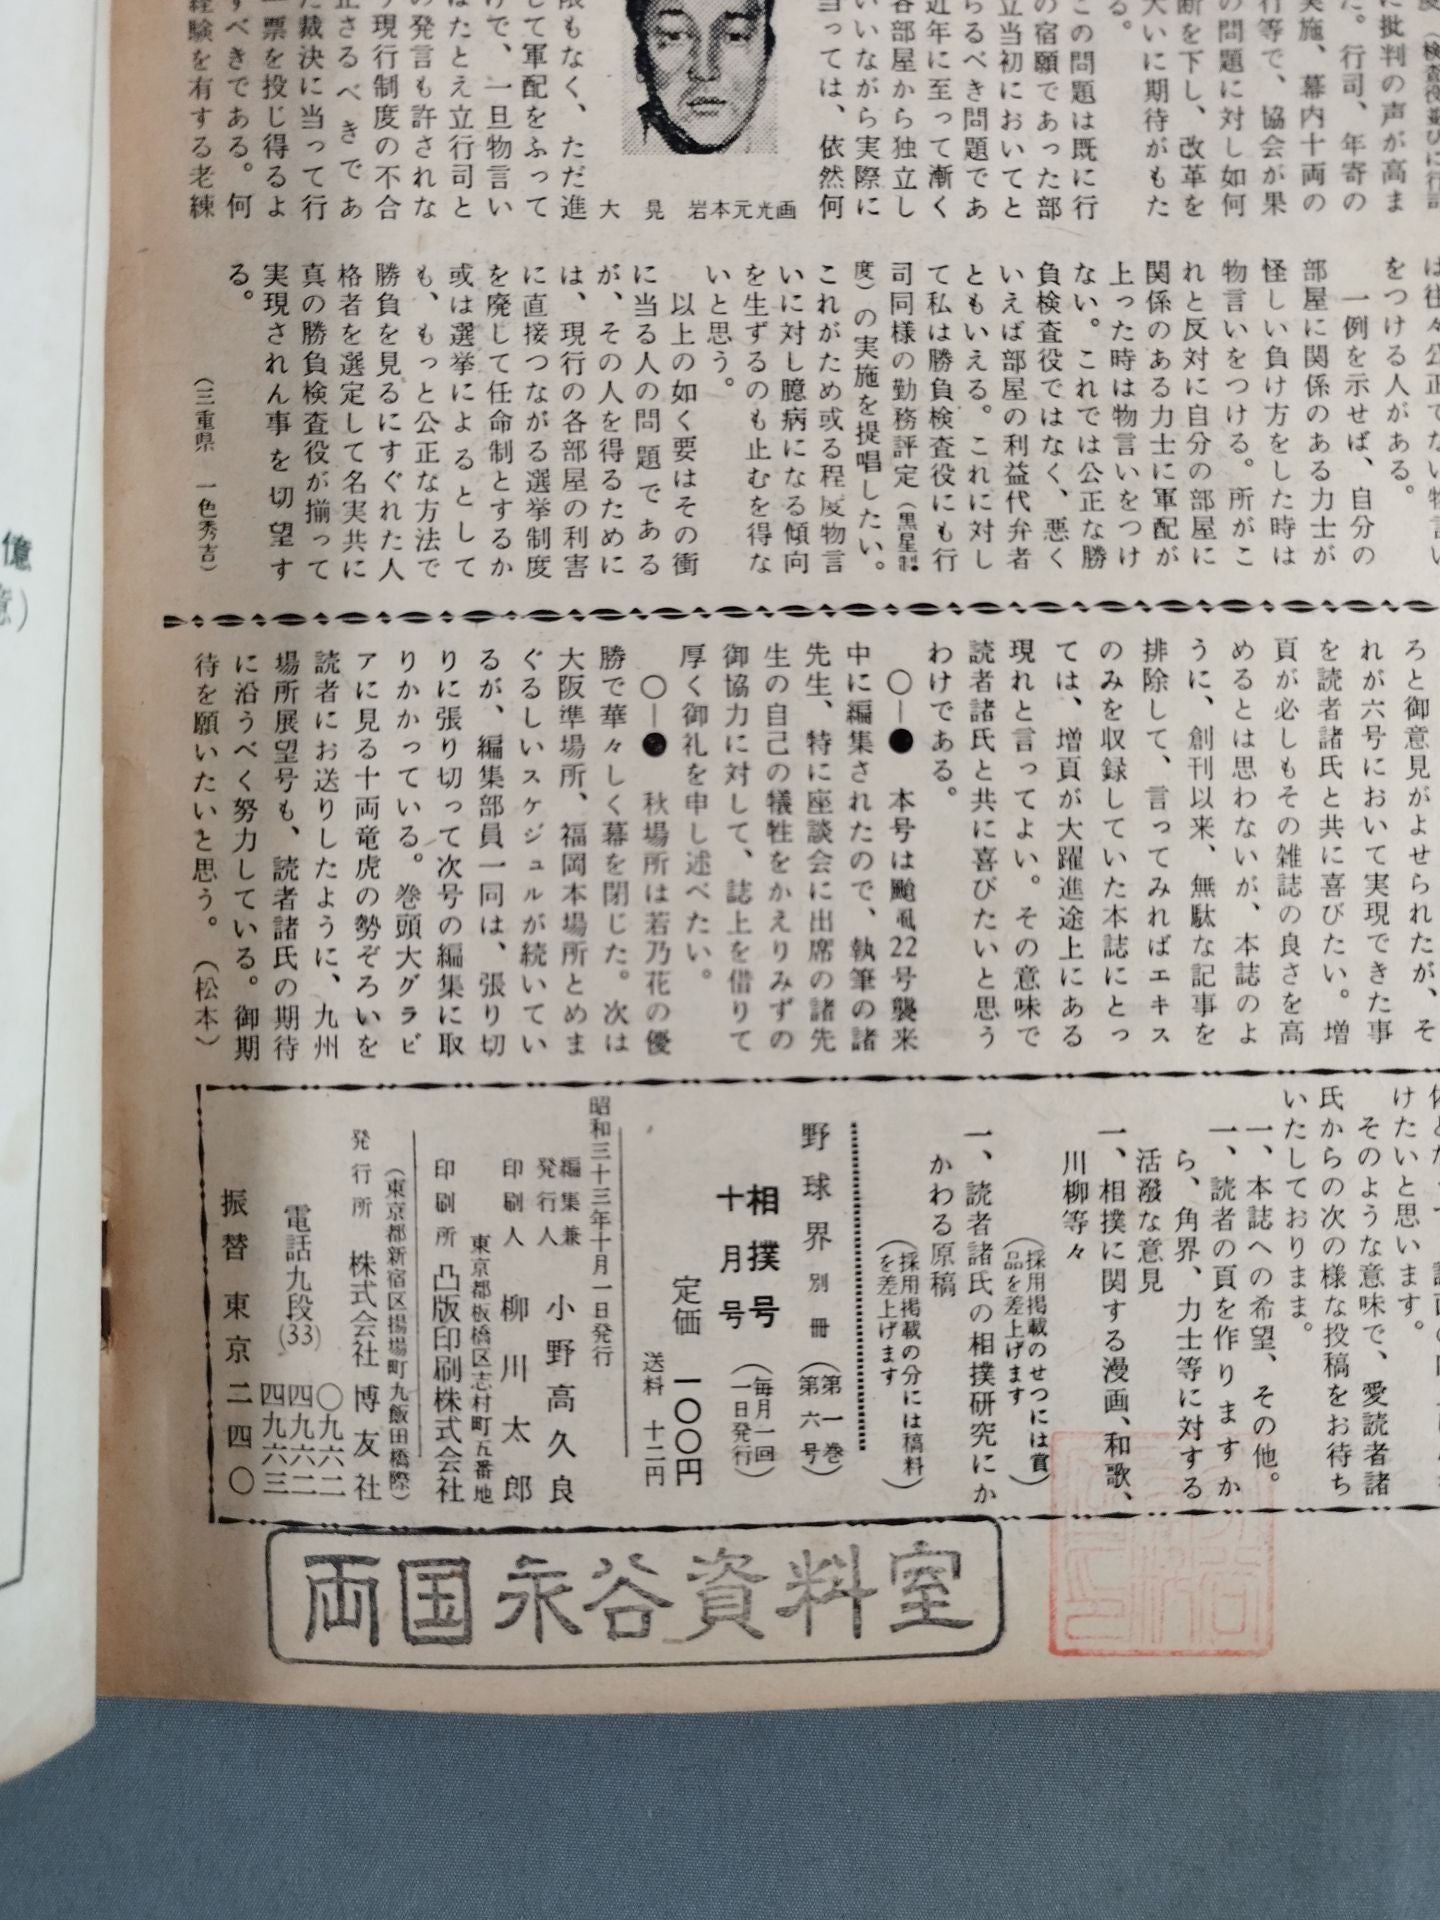 度（検査役並びに行司
に批判の声が高ま
た。行司、年寄の
実施、幕内十両の
行等で、協会が果
の問題に対し如何
断を下し、改革を
大いに期待がもた
る。
この問題は既に行
の宿願であった部
立当初においてと
らるべき問題であ
近年に至って漸く
各部屋から独立し
いいながら実際に
当っては、依然何
大晃　岩本元光画
限もなく、ただ進
して軍配をふって
けで、一旦物言い
はたとえ立行司と
の発言も許されな
現行制度の不合
正さるべきであ
た裁決に当って行
一票を投じ得るよ
すべきである。何
経験を有する老練
は往々公正でない物言い
をつける人がある。
一例を示せば、自分の
部屋に関係のある力士が
怪しい負け方をした時は
物言いをつける。所がこ
れと反対に自分の部屋に
関係のある力士に軍配が
上った時は物言いをつけ
ない。これでは公正な勝
負検査役ではなく、悪く
いえば部屋の利益代弁者
ともいえる。これに対し
て私は勝負検査役にも行
司同様の勤務評定（黒星制
度）の実施を提唱したい。
これがため或る程度物言
いに対し臆病になる傾向
を生ずるのも止むを得な
いと思う。
以上の如く要はその衝
に当る人の問題である
が、その人を得るために
は、現行の各部屋の利害
に直接つながる選挙制度
を廃して任命制とするか
或は選挙によるとして
も、もっと公正な方法で
勝負を見るにすぐれた人
格者を選定して名実共に
真の勝負検査役が揃って
実現されん事を切望す
る。
（三重県　一色秀吉）
ろと御意見がよせられたが、そ
れが六号において実現できた事
を読者諸氏と共に喜びたい。増
頁が必しもその雑誌の良さを高
めるとは思わないが、本誌のよ
うに、創刊以来、無駄な記事を
排除して、言ってみればエキス
のみを収録していた本誌にとっ
ては、増頁が大躍進途上にある
現れと言ってよい。その意味で
読者諸氏と共に喜びたいと思う
わけである。
○―●　本号は颱風22号襲来
中に編集されたので、執筆の諸
先生、特に座談会に出席の諸先
生の自己の犠牲をかえりみずの
御協力に対して、誌上を借りて
厚く御礼を申し述べたい。
○―●　秋場所は若乃花の優
勝で華々しく幕を閉じた。次は
大阪準場所、福岡本場所とめま
ぐるしいスケジュルが続いてい
るが、編集部員一同は、張り切
りに張り切って次号の編集に取
りかかっている。巻頭大グラビ
アに見る十両竜虎の勢ぞろいを
読者にお送りしたように、九州
場所展望号も、読者諸氏の期待
に沿うべく努力している。御期
待を願いたいと思う。（松本）
けたいと思います。
そのような意味で、愛読者諸
氏からの次の様な投稿をお待ち
いたしております。
一、本誌への希望、その他。
一、読者の頁を作りますか
ら、角界、力士等に対する
活潑な意見
一、相撲に関する漫画、和歌、
川柳等々
（採用掲載のせつには賞
品を差上げます）
一、読者諸氏の相撲研究にか
かわる原稿
（採用掲載の分には稿料
を差上げます）
野球界別冊（第一巻
第六号）
相撲号
十月号
（毎月一回
一日発行）
定価　一〇〇円
送料　十二円
昭和三十三年十月一日発行
編集兼
発行人　小野高久良
印刷人　柳川太郎
東京都板橋区志村町五番地
印刷所　凸版印刷株式会社
（東京都新宿区揚場町九飯田橋際）
発行所　株式会社　博友社
電話九段(33)
〇九六二
四九六二
四九六三
振替　東京　二四〇
両国永谷資料室
億